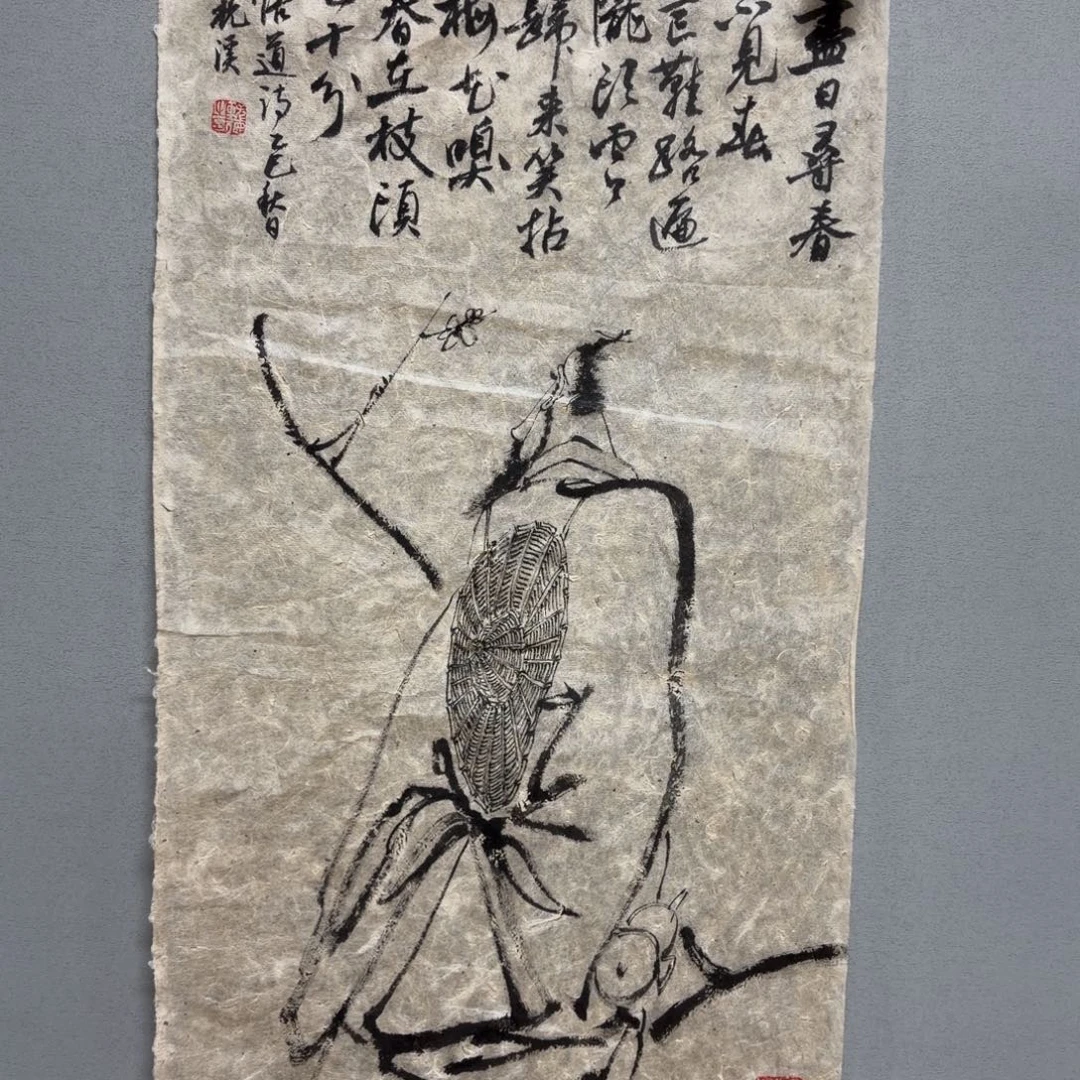 盡日尋春
不見春
芒鞋踏遍
隴頭雲
歸來笑拈
梅花嗅
春在枝頭
已十分
悟道詩乙巳秋日
溪